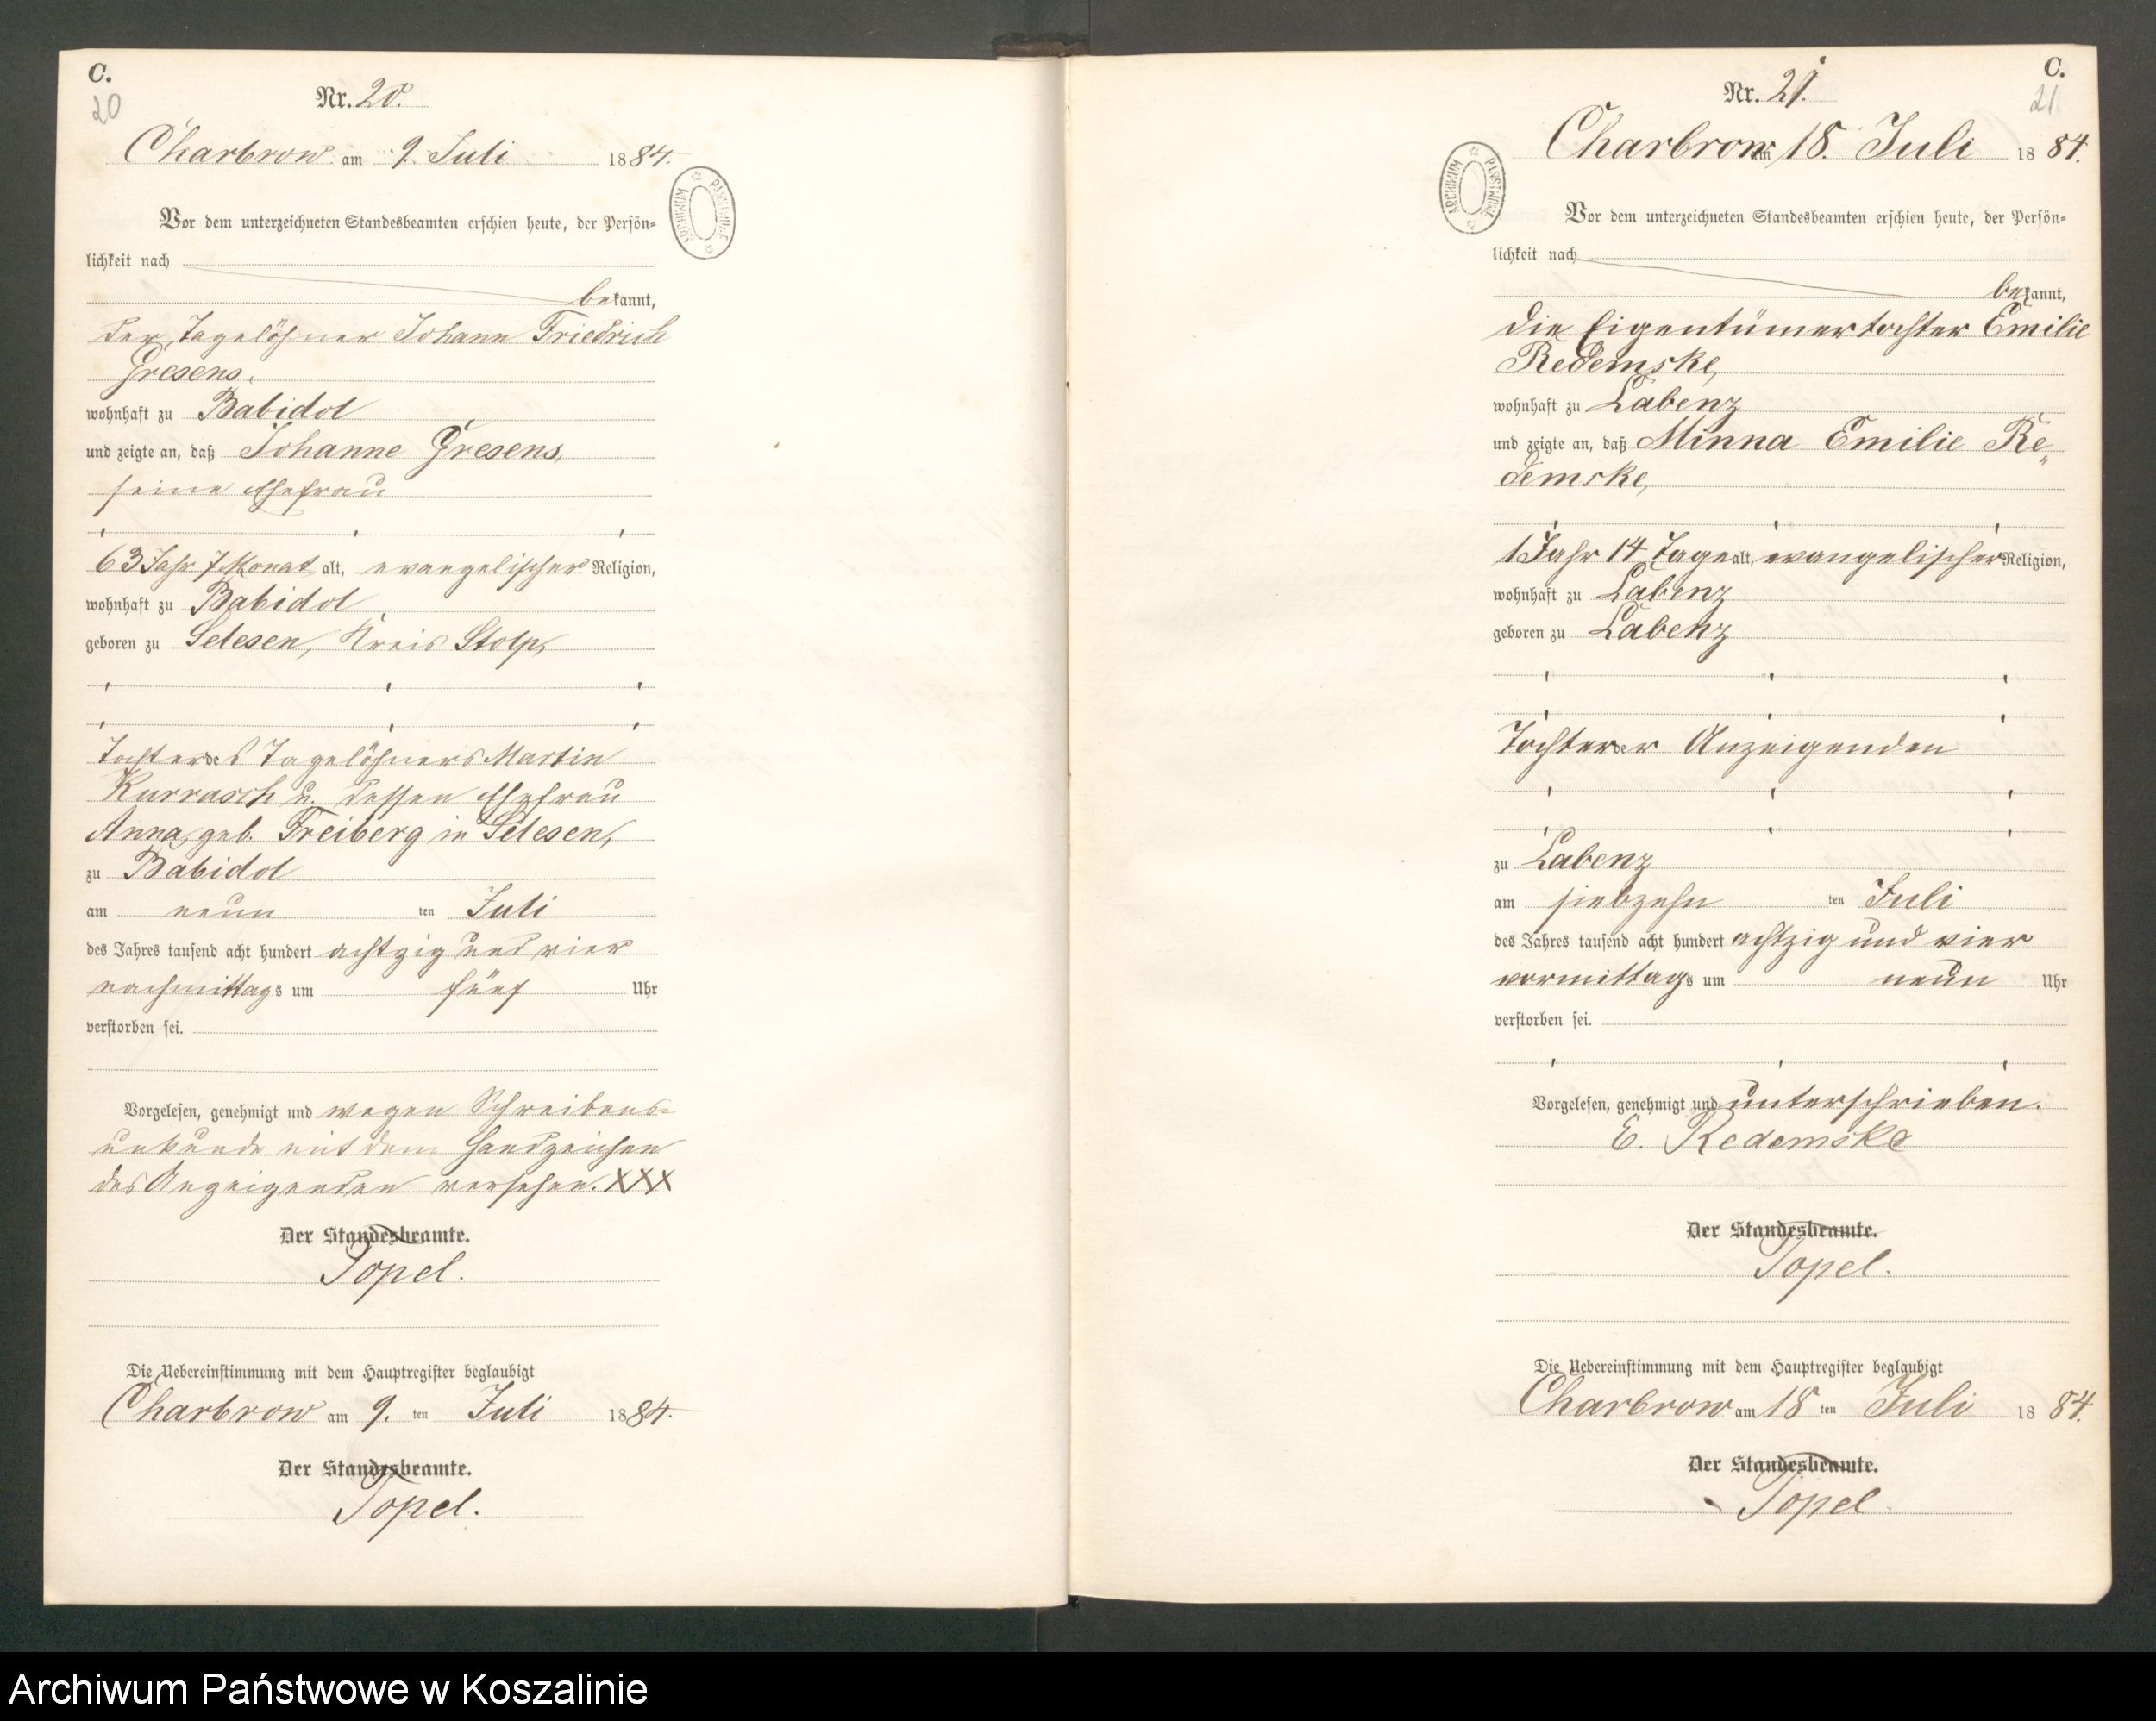 C.
20
Nr. 20.
Charbrow am 9. Juli 1884.
ARCHIWUM PAŃSTWOWE
Vor dem unterzeichneten Standesbeamten erschien heute, der Persön-
lichkeit nach
bekannt,
der Tagelöhner Johann Friedrich
Gresens,
wohnhaft zu Babidol
und zeigte an, daß Johanne Gresens,
seine Ehefrau
63 Jahr 7 Monat alt, evangelischer Religion,
wohnhaft zu Babidol,
geboren zu Selesen, Kreis Stolp,
Tochter des Tagelöhners Martin
Kurrasch u. dessen Ehefrau
Anna, geb. Freiberg in Selesen,
zu Babidol
am neun ten Juli
des Jahres tausend acht hundert achtzig und vier
nachmittags um fünf Uhr
verstorben sei.
Vorgelesen, genehmigt und wegen Schreibens-
unkunde mit dem Handzeichen
des Anzeigenden versehen. XXX
Der Standesbeamte.
Topel.
Die Uebereinstimmung mit dem Hauptregister beglaubigt
Charbrow am 9. ten Juli 1884.
Der Standesbeamte.
Topel.
C.
21
Nr. 21.
Charbrow am 18. Juli 1884.
ARCHIWUM PAŃSTWOWE
Vor dem unterzeichneten Standesbeamten erschien heute, der Persön-
lichkeit nach
bekannt,
die Eigentümertochter Emilie
Redemske,
wohnhaft zu Labenz
und zeigte an, daß Minna Emilie Re„
demske,
1 Jahr 14 Tage alt, evangelischer Religion,
wohnhaft zu Labenz
geboren zu Labenz
Tochter der Anzeigenden
zu Labenz
am siebzehn ten Juli
des Jahres tausend acht hundert achtzig und vier
vormittags um neun Uhr
verstorben sei.
Vorgelesen, genehmigt und unterschrieben.
E. Redemske
Der Standesbeamte.
Topel.
Die Uebereinstimmung mit dem Hauptregister beglaubigt
Charbrow am 18 ten Juli 1884.
Der Standesbeamte.
Topel.
Archiwum Państwowe w Koszalinie